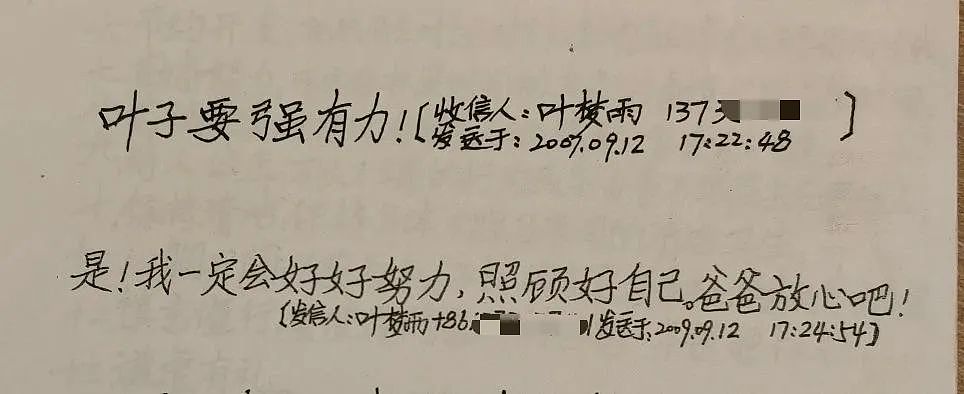 叶子要强有力！[收信人：叶梦雨 1373
发送于：2007.09.12 17:22:48]
是！我一定会好好努力，照顾好自己。爸爸放心吧！
[发信人：叶梦雨+86
发送于：2009.09.12 17:24:54]